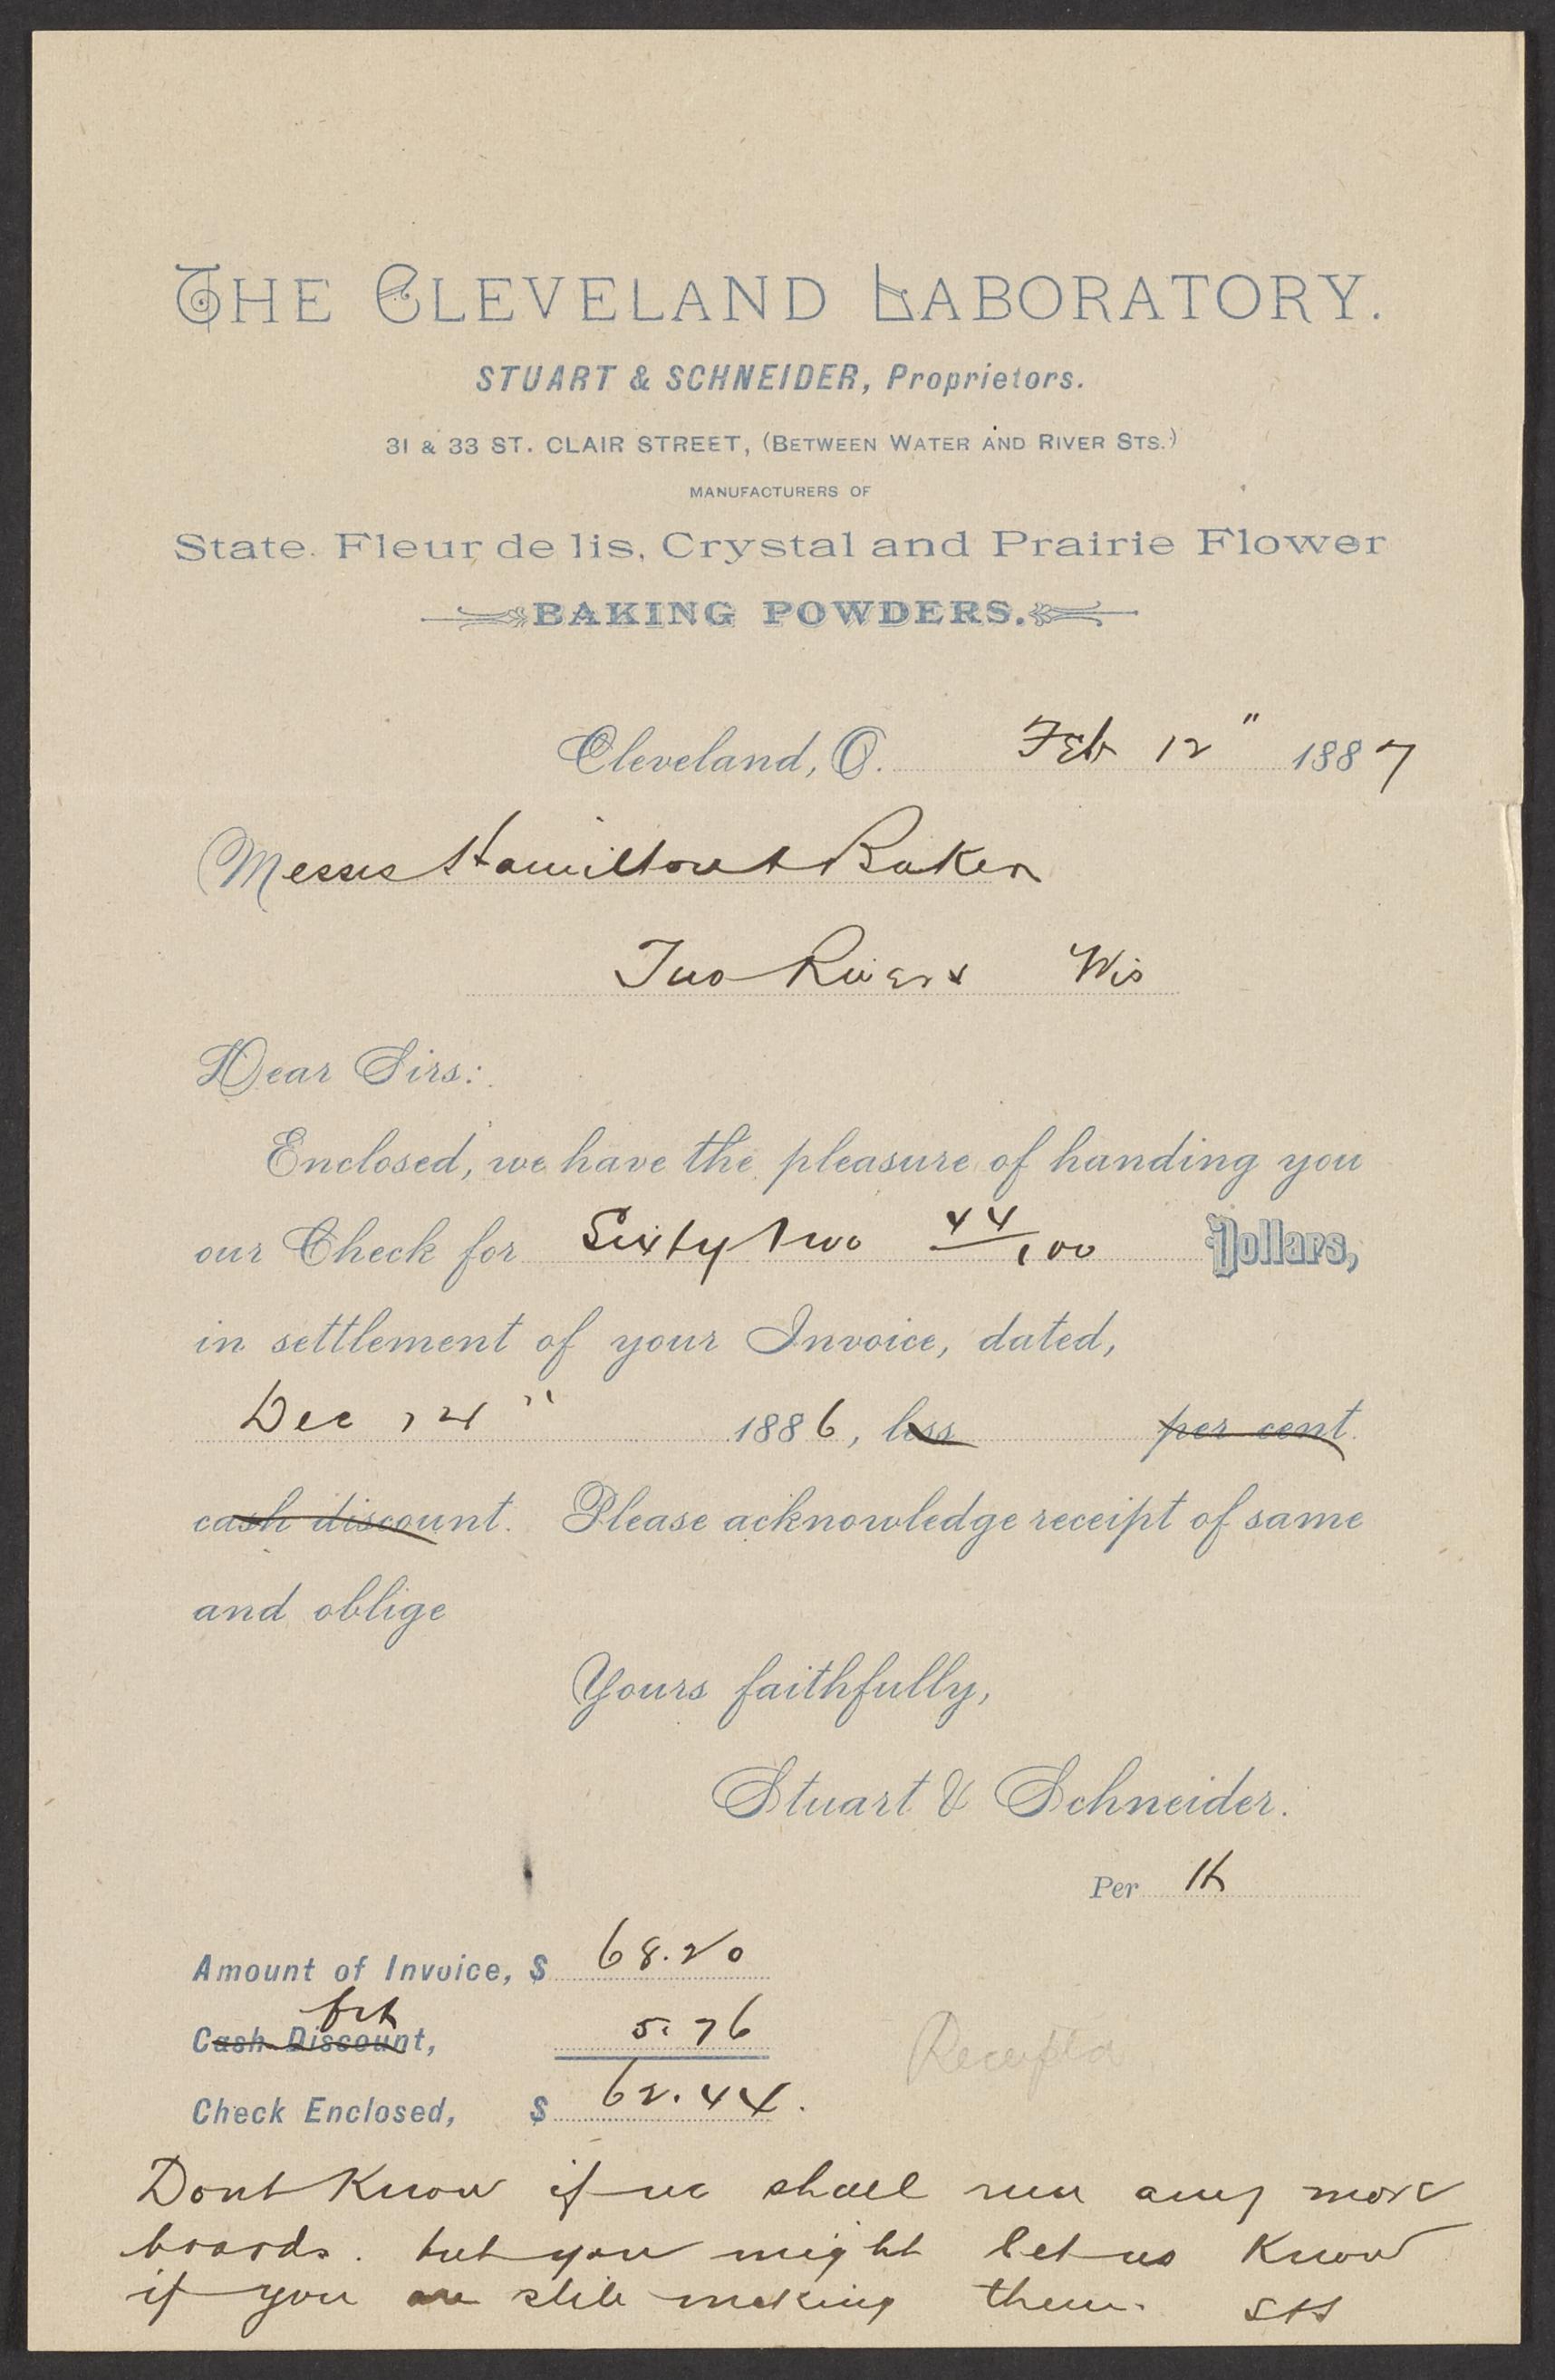 THE CLEVELAND LABORATORY.
STUART & SCHNEIDER, Proprietors.
31 & 33 ST. CLAIR STREET, (BETWEEN WATER AND RIVER STS.)
MANUFACTURERS OF
State. Fleur de lis, Crystal and Prairie Flower
BAKING POWDERS.
Cleveland, O. Feb 12" 1887
Messrs Hamilton & Baker
Two Rivers Wis
Dear Sirs:
Enclosed, we have the pleasure of handing you
our Check for Sixty two 44/100 Dollars,
in settlement of your Invoice, dated,
Dec 24" 1886, less per cent.
cash discount. Please acknowledge receipt of same
and oblige
Yours faithfully,
Stuart & Schneider.
Per
Amount of Invoice, $ 68.20
frt
Cash Discount, 5.76
Check Enclosed, $ 62.44.
Dont Know if we shall run any more
boards. but you might let us Know
if you are still making them. S&S